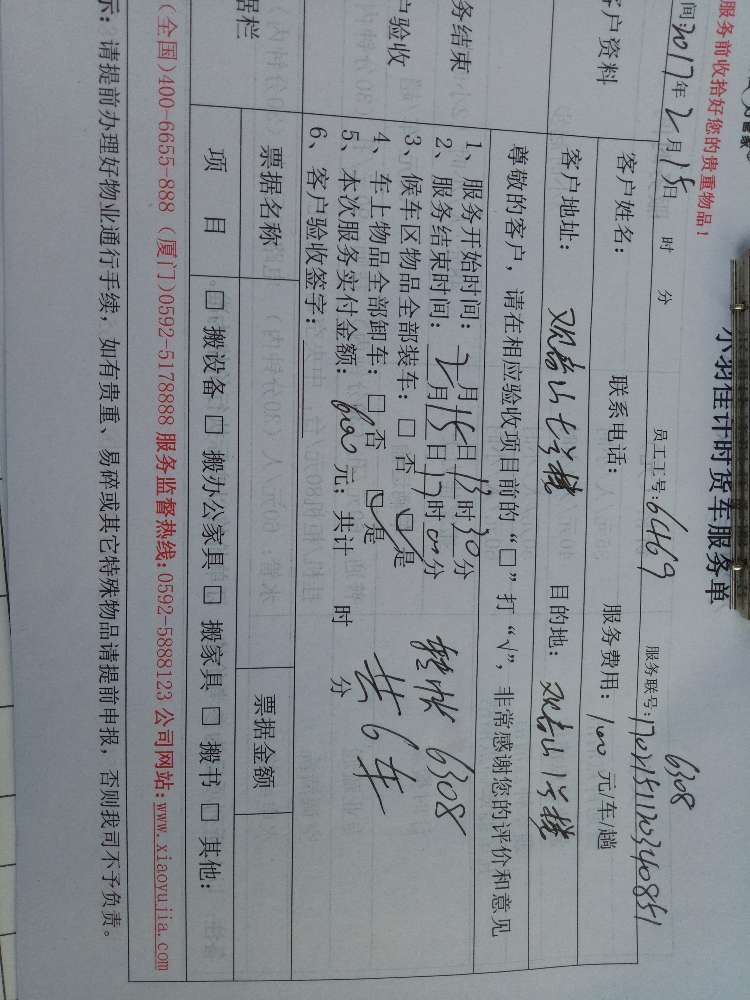 服务前收拾好您的贵重物品！
小羽佳计时货车服务单
间：2017年2月15日 时 分 员工工号：6469 服务联号：1702151120340851
6308
客户资料
客户姓名： 联系电话： 服务费用：100元/车/趟
客户地址： 观音山七号楼 目的地： 观音山1号楼
务结束
户验收
尊敬的客户，请在相应验收项目前的“□”打“√”，非常感谢您的评价和意见
1、服务开始时间：2月15日13时30分
2、服务结束时间：2月15日17时00分
3、候车区物品全部装车：□否 ☑是
4、车上物品全部卸车：□否 ☑是
5、本次服务实付金额：600元；共计 时 分
6、客户验收签字：
6308
共6车
据栏
票据名称 票据金额
项目 □搬设备 □搬办公家具 □搬家具 □搬书 □其他：
(全国)400-6655-888（厦门)0592-5178888 服务监督热线：0592-5888123 公司网站：www.xiaoyujia.com
示：请提前办理好物业通行手续，如有贵重、易碎或其它特殊物品请提前申报，否则我司不予负责。